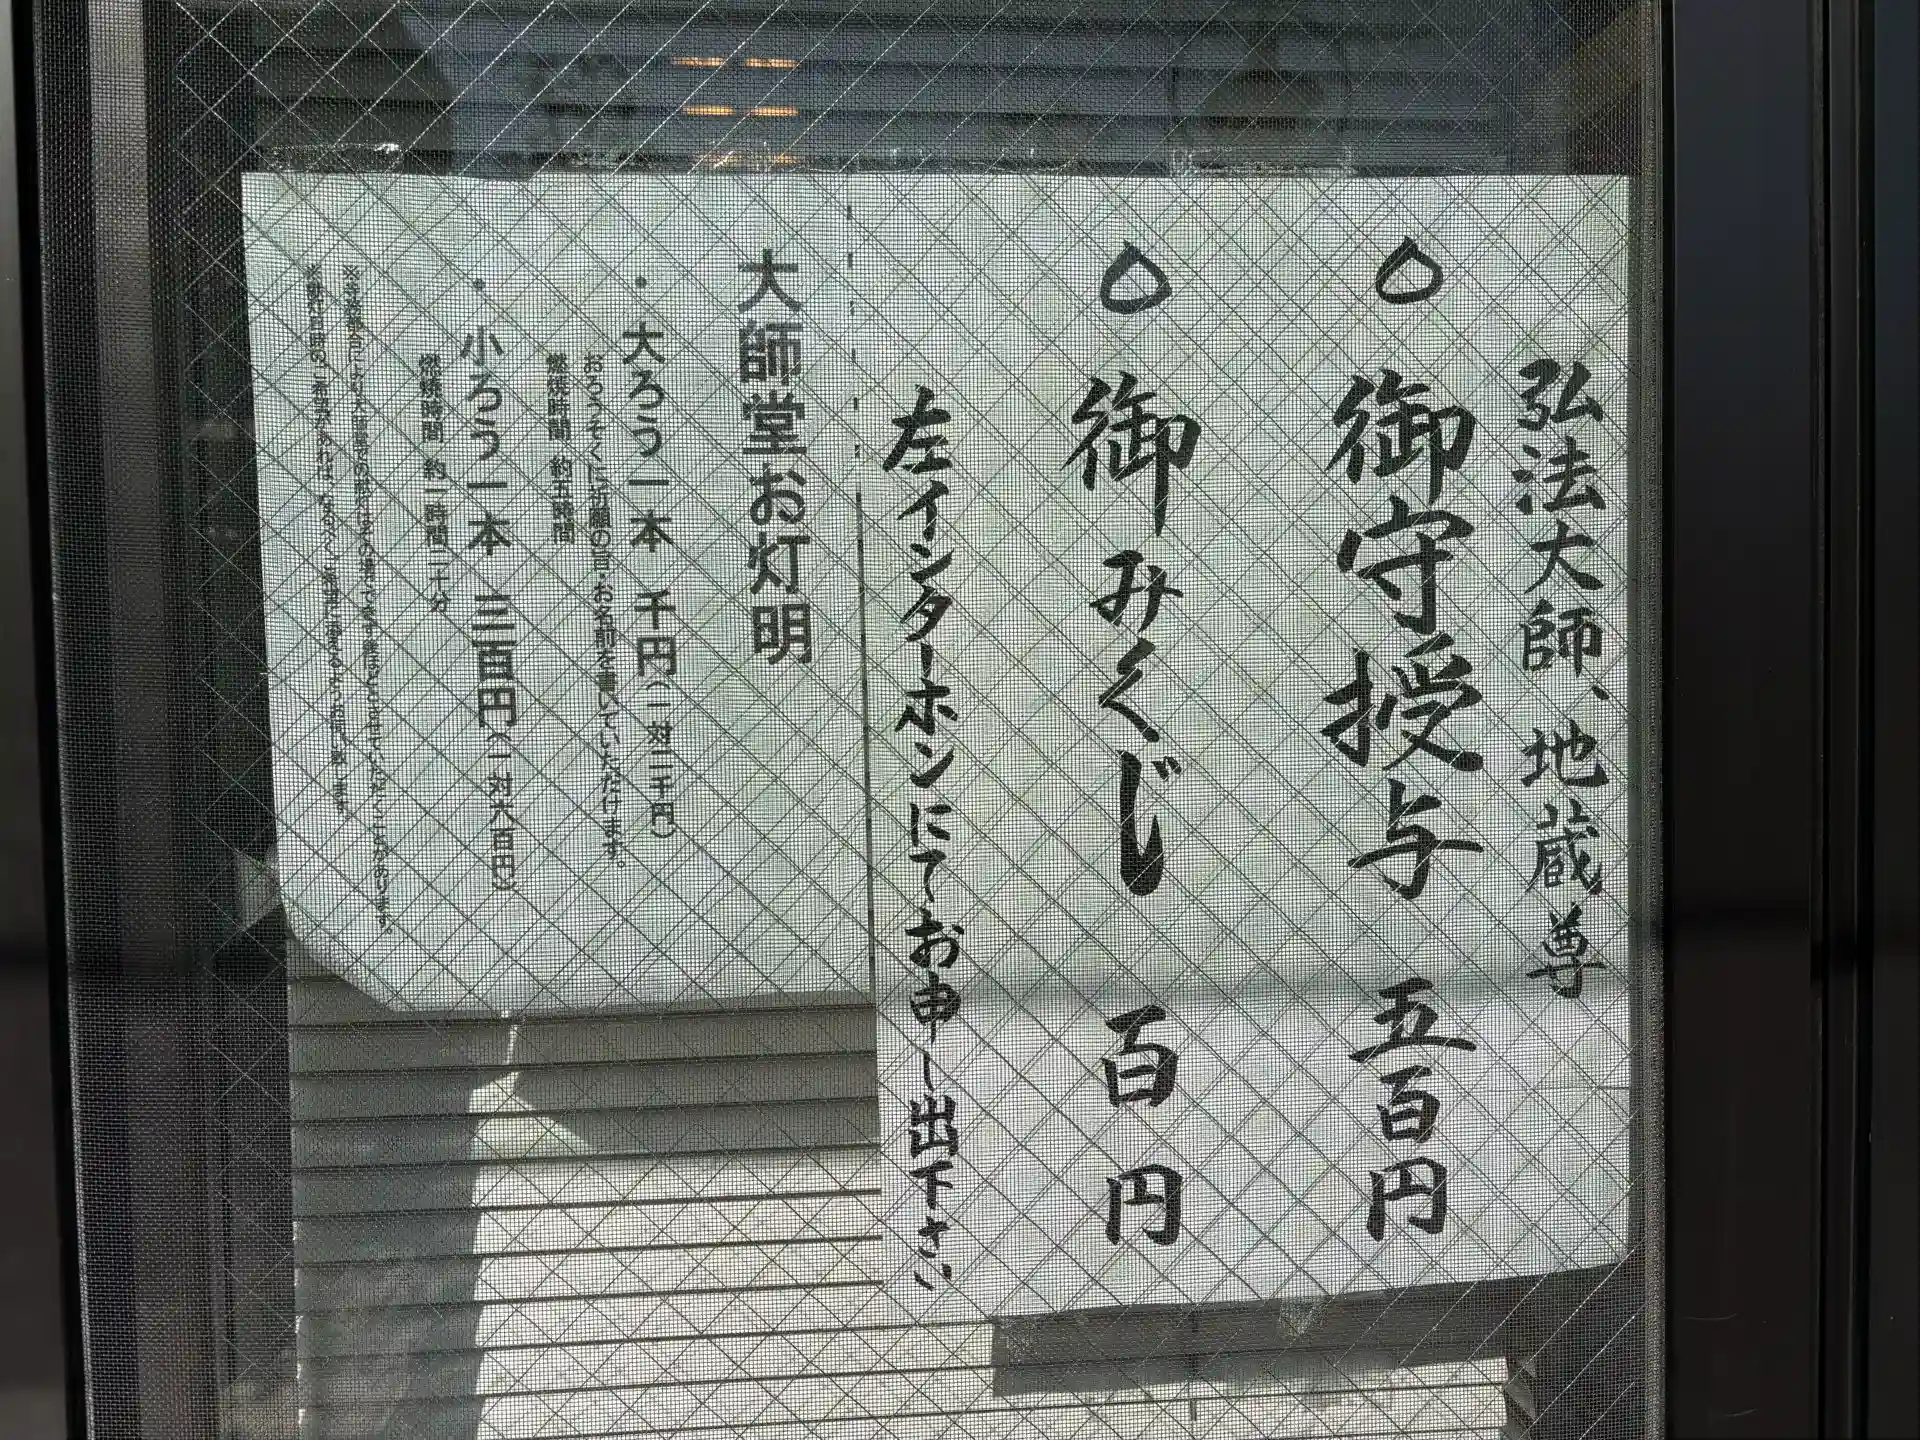 弘法大師、地蔵尊
○ 御守授与 五百円
○ 御みくじ 百円
左インターホンにてお申し出下さい
大師堂お灯明
・大ろう一本 千円(一対二千円)
おろうそくに祈願の旨・お名前を書いていただけます。
燃焼時間 約五時間
・小ろう一本 三百円(一対六百円)
燃焼時間 約一時間二十分